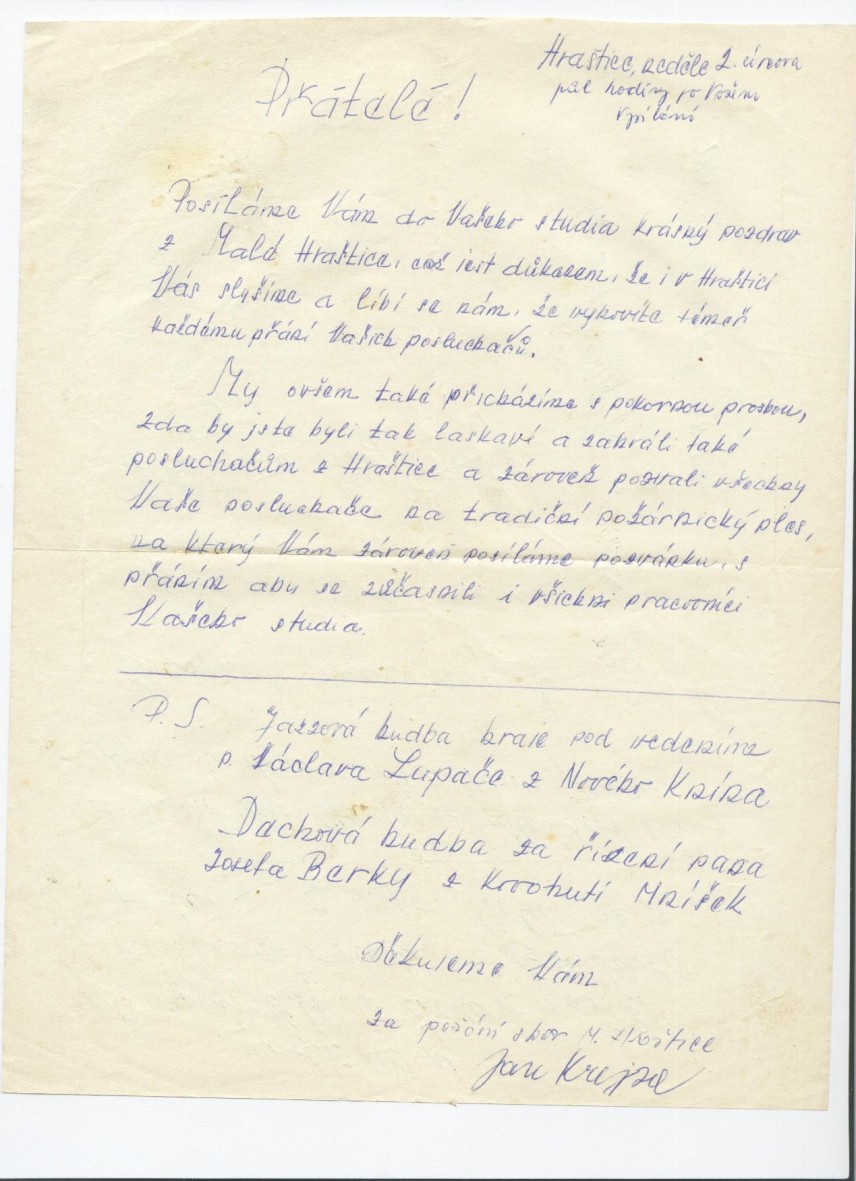 Hraštice, neděle 2. února
půl hodiny po Vašem
vysílání
Přátelé!
Posíláme Vám do Vašeho studia krásný pozdrav
z Malé Hraštice, což jest důkazem, že i v Hraštici
Vás slyšíme a líbí se nám, že vyhovíte téměř
každému přání Vašich posluchačů.
My ovšem také přicházíme s pokornou prosbou,
zda by jste byli tak laskaví a zahráli také
posluchačům z Hraštice a zároveň pozvali všechny
Vaše posluchače na tradiční požárnický ples,
na který Vám zároveň posíláme pozvánku, s
přáním aby se zúčasnili i všichni pracovníci
Vašeho studia.
P.S. Jazzová hudba hraje pod vedením
p. Václava Lupače z Nového Knína
Dechová hudba za řízení pana
Josefa Berky z Huti Mníšek
Děkujeme Vám
za požární sbor M. Hraštice
Jan